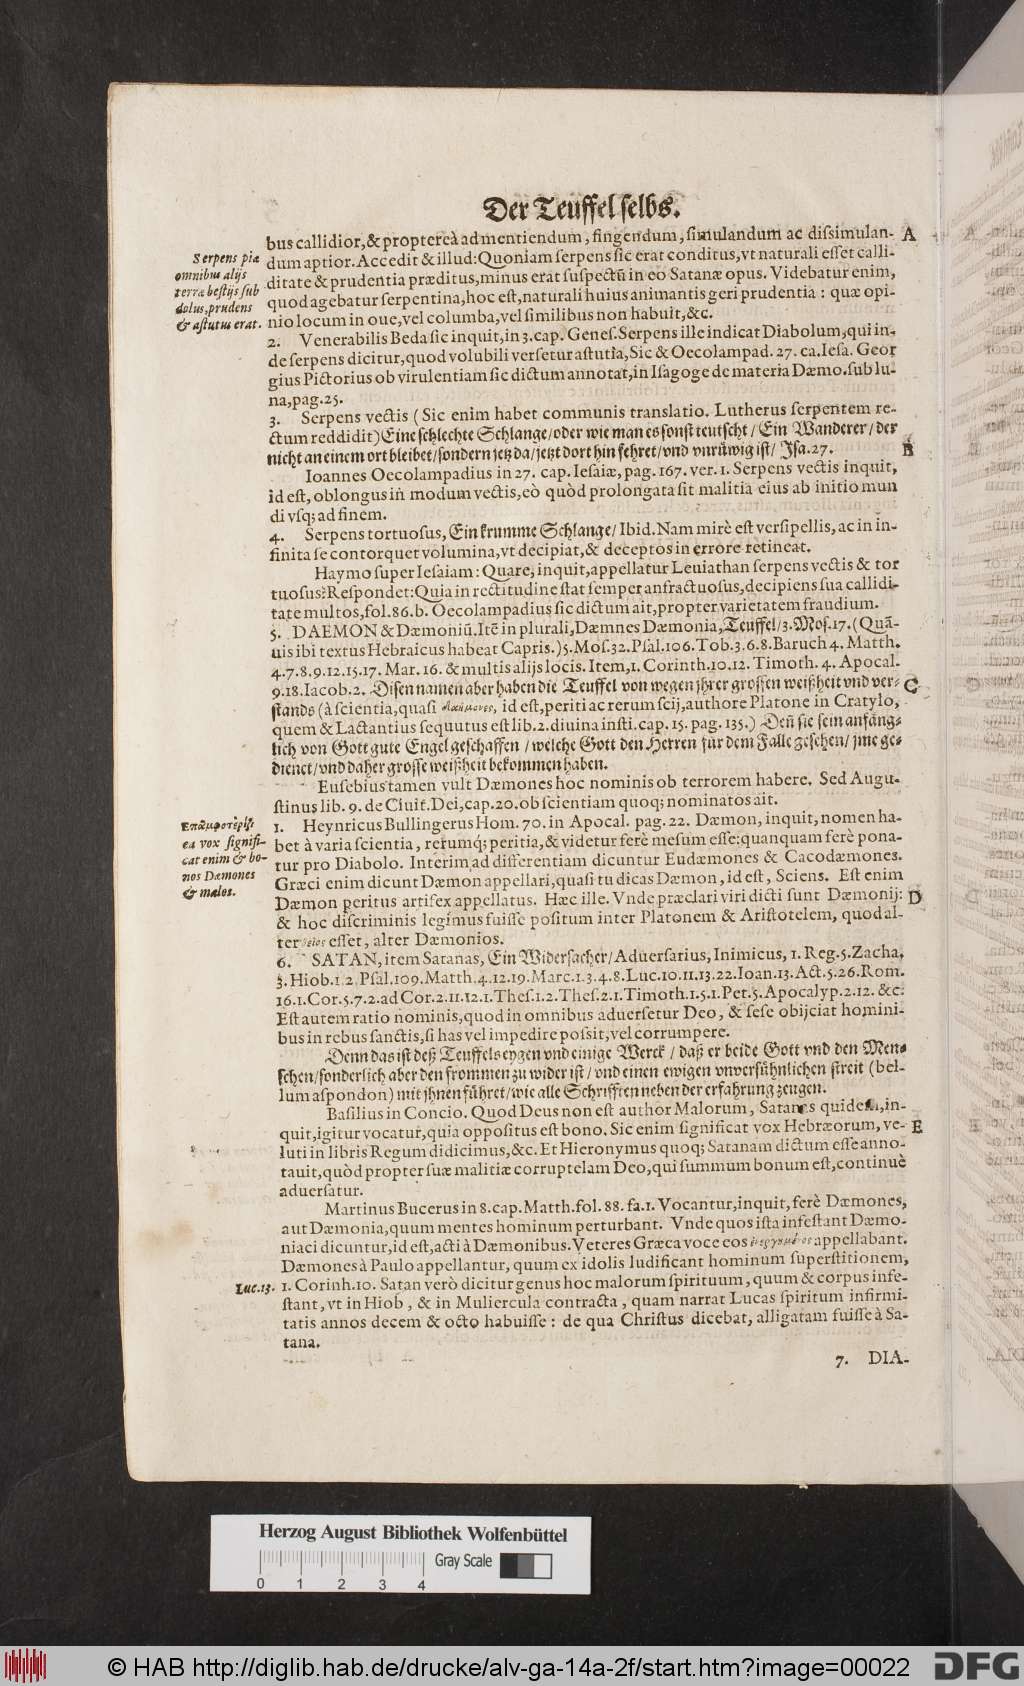 Der Teuffel selbs.
bus callidior, & propterèà ad mentiendum, fingendum, simulandum ac dissimulan-
dum aptior. Accedit & illud: Quoniam serpens sic erat conditus, vt naturali esset calli-
ditate & prudentia præditus, minus erat suspectũ in eo Satanæ opus. Videbatur enim,
quod agebatur serpentina, hoc est, naturali huius animantis geri prudentia: quæ opi-
nio locum in oue, vel columba, vel similibus non habuit, &c.
A
Serpens piæ
omnibus alijs
terræ bestijs sub
dolus, prudens
& astutus erat.
2. Venerabilis Beda sic inquit, in 3. cap. Genes. Serpens ille indicat Diabolum, qui in-
de serpens dicitur, quod volubili versetur astutia, Sic & Oecolampad. 27. ca. Iesa. Geor
gius Pictorius ob virulentiam sic dictum annotat, in Isagoge de materia Dæmo. sub lu-
na, pag. 25.
3. Serpens vectis (Sic enim habet communis translatio. Lutherus serpentem re-
ctum reddidit) Eine schlechte Schlange / oder wie man es sonst teutscht / Ein Wanderer / der
nicht an einem ort bleibet / sondern jetz da / jetzt dort hin fehret / vnd vnrüwig ist / Jsa. 27.
B
Ioannes Oecolampadius in 27. cap. Iesaiæ, pag. 167. ver. 1. Serpens vectis inquit,
id est, oblongus in modum vectis, eò quòd prolongata sit malitia eius ab initio mun
di vsq; ad finem.
4. Serpens tortuosus, Ein krumme Schlange / Ibid. Nam mirè est versipellis, ac in in-
finita se contorquet volumina, vt decipiat, & deceptos in errore retineat.
Haymo super Iesaiam: Quare, inquit, appellatur Leuiathan serpens vectis & tor
tuosus? Respondet: Quia in rectitudine stat semper anfractuosus, decipiens sua callidi-
tate multos, fol. 86. b. Oecolampadius sic dictum ait, propter varietatem fraudium.
5. DAEMON & Dæmoniũ. Itẽ in plurali, Dæmnes Dæmonia, Teuffel / 3. Mos. 17. (Quã-
uis ibi textus Hebraicus habeat Capris.) 5. Mos. 32. Psal. 106. Tob. 3. 6. 8. Baruch 4. Matth.
4. 7. 8. 9. 12. 15. 17. Mar. 16. & multis alijs locis. Item, 1. Corinth. 10. 12. Timoth. 4. Apocal.
9. 18. Iacob. 2. Disen namen aber haben die Teuffel von wegen jhrer grossen weißheit vnd ver-
C
stands (à scientia, quasi δαήμονες, id est, periti ac rerum scij, authore Platone in Cratylo,
quem & Lactantius sequutus est lib. 2. diuina insti. cap. 15. pag. 135.) Deñ sie sein anfäng-
lich von Gott gute Engel geschaffen / welche Gott den Herren für dem Falle gesehen / jme ge-
dienet / vnd daher grosse weißheit bekommen haben.
Eusebius tamen vult Dæmones hoc nominis ob terrorem habere. Sed Augu-
stinus lib. 9. de Ciuit. Dei, cap. 20. ob scientiam quoq; nominatos ait.
1. Heynricus Bullingerus Hom. 70. in Apocal. pag. 22. Dæmon, inquit, nomen ha-
bet à varia scientia, rerumq; peritia, & videtur ferè mesum esse: quanquam ferè pona-
tur pro Diabolo. Interim ad differentiam dicuntur Eudæmones & Cacodæmones.
Græci enim dicunt Dæmon appellari, quasi tu dicas Dæmon, id est, Sciens. Est enim
Dæmon peritus artifex appellatus. Hæc ille. Vnde præclari viri dicti sunt Dæmonij:
& hoc discriminis legimus fuisse positum inter Platonem & Aristotelem, quod al-
ter θεῖος esset, alter Dæmonios.
D
ea vox signifi-
cat enim & bo-
nos Dæmones
& malos.
6. SATAN, item Satanas, Ein Widersacher / Aduersarius, Inimicus, 1. Reg. 5. Zacha.
3. Hiob. 1. 2. Psal. 109. Matth. 4. 12. 19. Marc. 1. 3. 4. 8. Luc. 10. 11. 13. 22. Ioan. 13. Act. 5. 26. Rom.
16. 1. Cor. 5. 7. 2. ad Cor. 2. 11. 12. 1. Thes. 1. 2. Thes. 2. 1. Timoth. 1. 5. 1. Pet. 5. Apocalyp. 2. 12. &c.
Est autem ratio nominis, quod in omnibus aduersetur Deo, & sese obijciat homini-
bus in rebus sanctis, si has vel impedire possit, vel corrumpere.
Denn das ist deß Teuffels eygen vnd einige Werck / daß er beide Gott vnd den Men-
schen / sonderlich aber den frommen zu wider ist / vnd einen ewigen vnversühnlichen streit (bel-
lum aspondon) mit jhnen führet / wie alle Schrifften neben der erfahrung zeugen.
Basilius in Concio. Quod Deus non est author Malorum, Satanas quidem, in-
quit, igitur vocatur, quia oppositus est bono. Sic enim significat vox Hebræorum, ve-
luti in libris Regum didicimus, &c. Et Hieronymus quoq; Satanam dictum esse anno-
tauit, quòd propter suæ malitiæ corruptelam Deo, qui summum bonum est, continuè
aduersatur.
E
Martinus Bucerus in 8. cap. Matth. fol. 88. fa. 1. Vocantur, inquit, ferè Dæmones,
aut Dæmonia, quum mentes hominum perturbant. Vnde quos ista infestant Dæmo-
niaci dicuntur, id est, acti à Dæmonibus. Veteres Græca voce eos appellabant.
Dæmones à Paulo appellantur, quum ex idolis ludificant hominum superstitionem,
1. Corinh. 10. Satan verò dicitur genus hoc malorum spirituum, quum & corpus infe-
stant, vt in Hiob, & in Muliercula contracta, quam narrat Lucas spiritum infirmi-
tatis annos decem & octo habuisse: de qua Christus dicebat, alligatam fuisse à Sa-
tana.
Luc. 13.
7. DIA-
Herzog August Bibliothek Wolfenbüttel
Gray Scale
0 1 2 3 4
© HAB http://diglib.hab.de/drucke/alv-ga-14a-2f/start.htm?image=00022
DFG